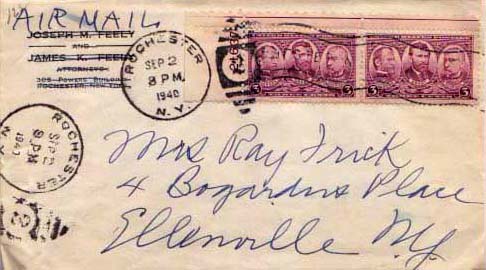 AIR MAIL
JOSEPH M. FEELY
AND
JAMES K. FEELY
ATTORNEYS
305 POWERS BUILDING
ROCHESTER, N.Y.
ROCHESTER
SEP 2
8 PM
1940
N.Y.
3 3
3 3
ROCHESTER
SEP 2
8 PM
1940
N.Y.
2
Mrs Ray Frick
4 Bogardus Place
Ellenville NY